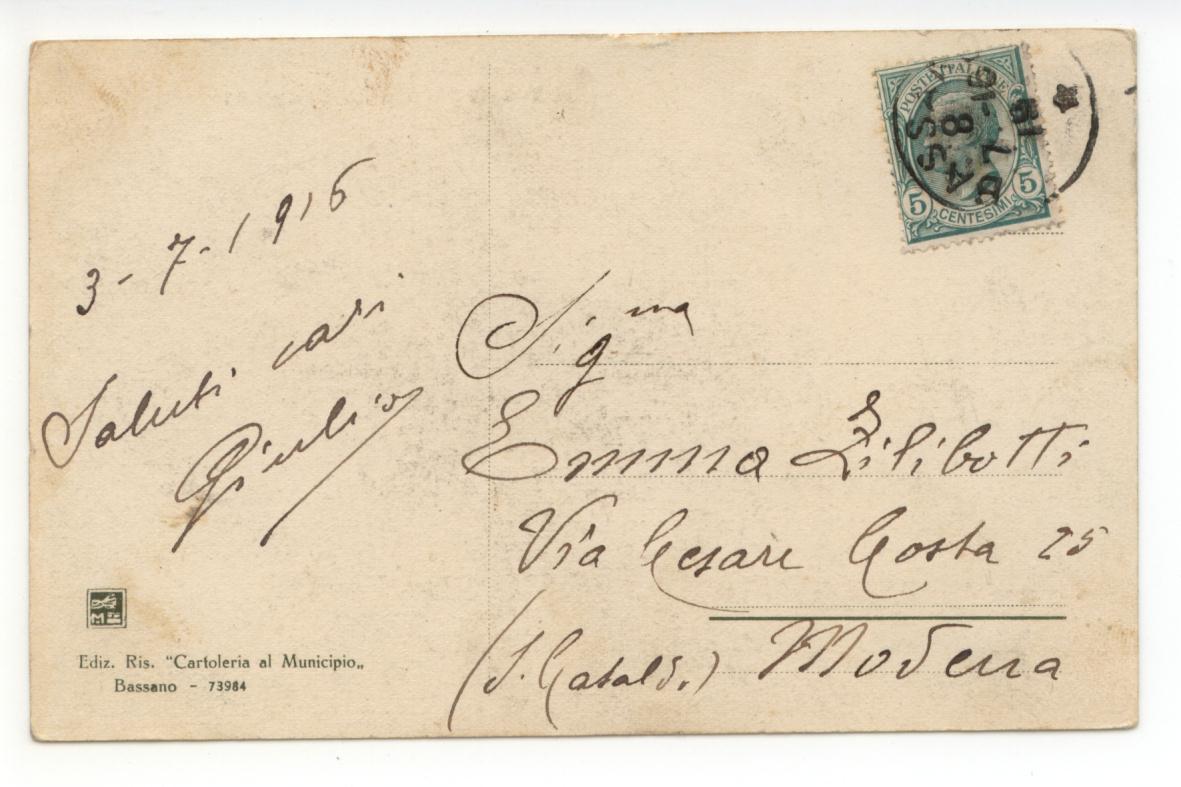 POSTE ITALIANE
5 CENTESIMI 5
3-7-1916
Saluti cari
Giulio
Sig.ma
Emma Zilibotti
Via Cesare Costa 25
(S. Cataldo.) Modena
Ediz. Ris. "Cartoleria al Municipio„
Bassano - 73984